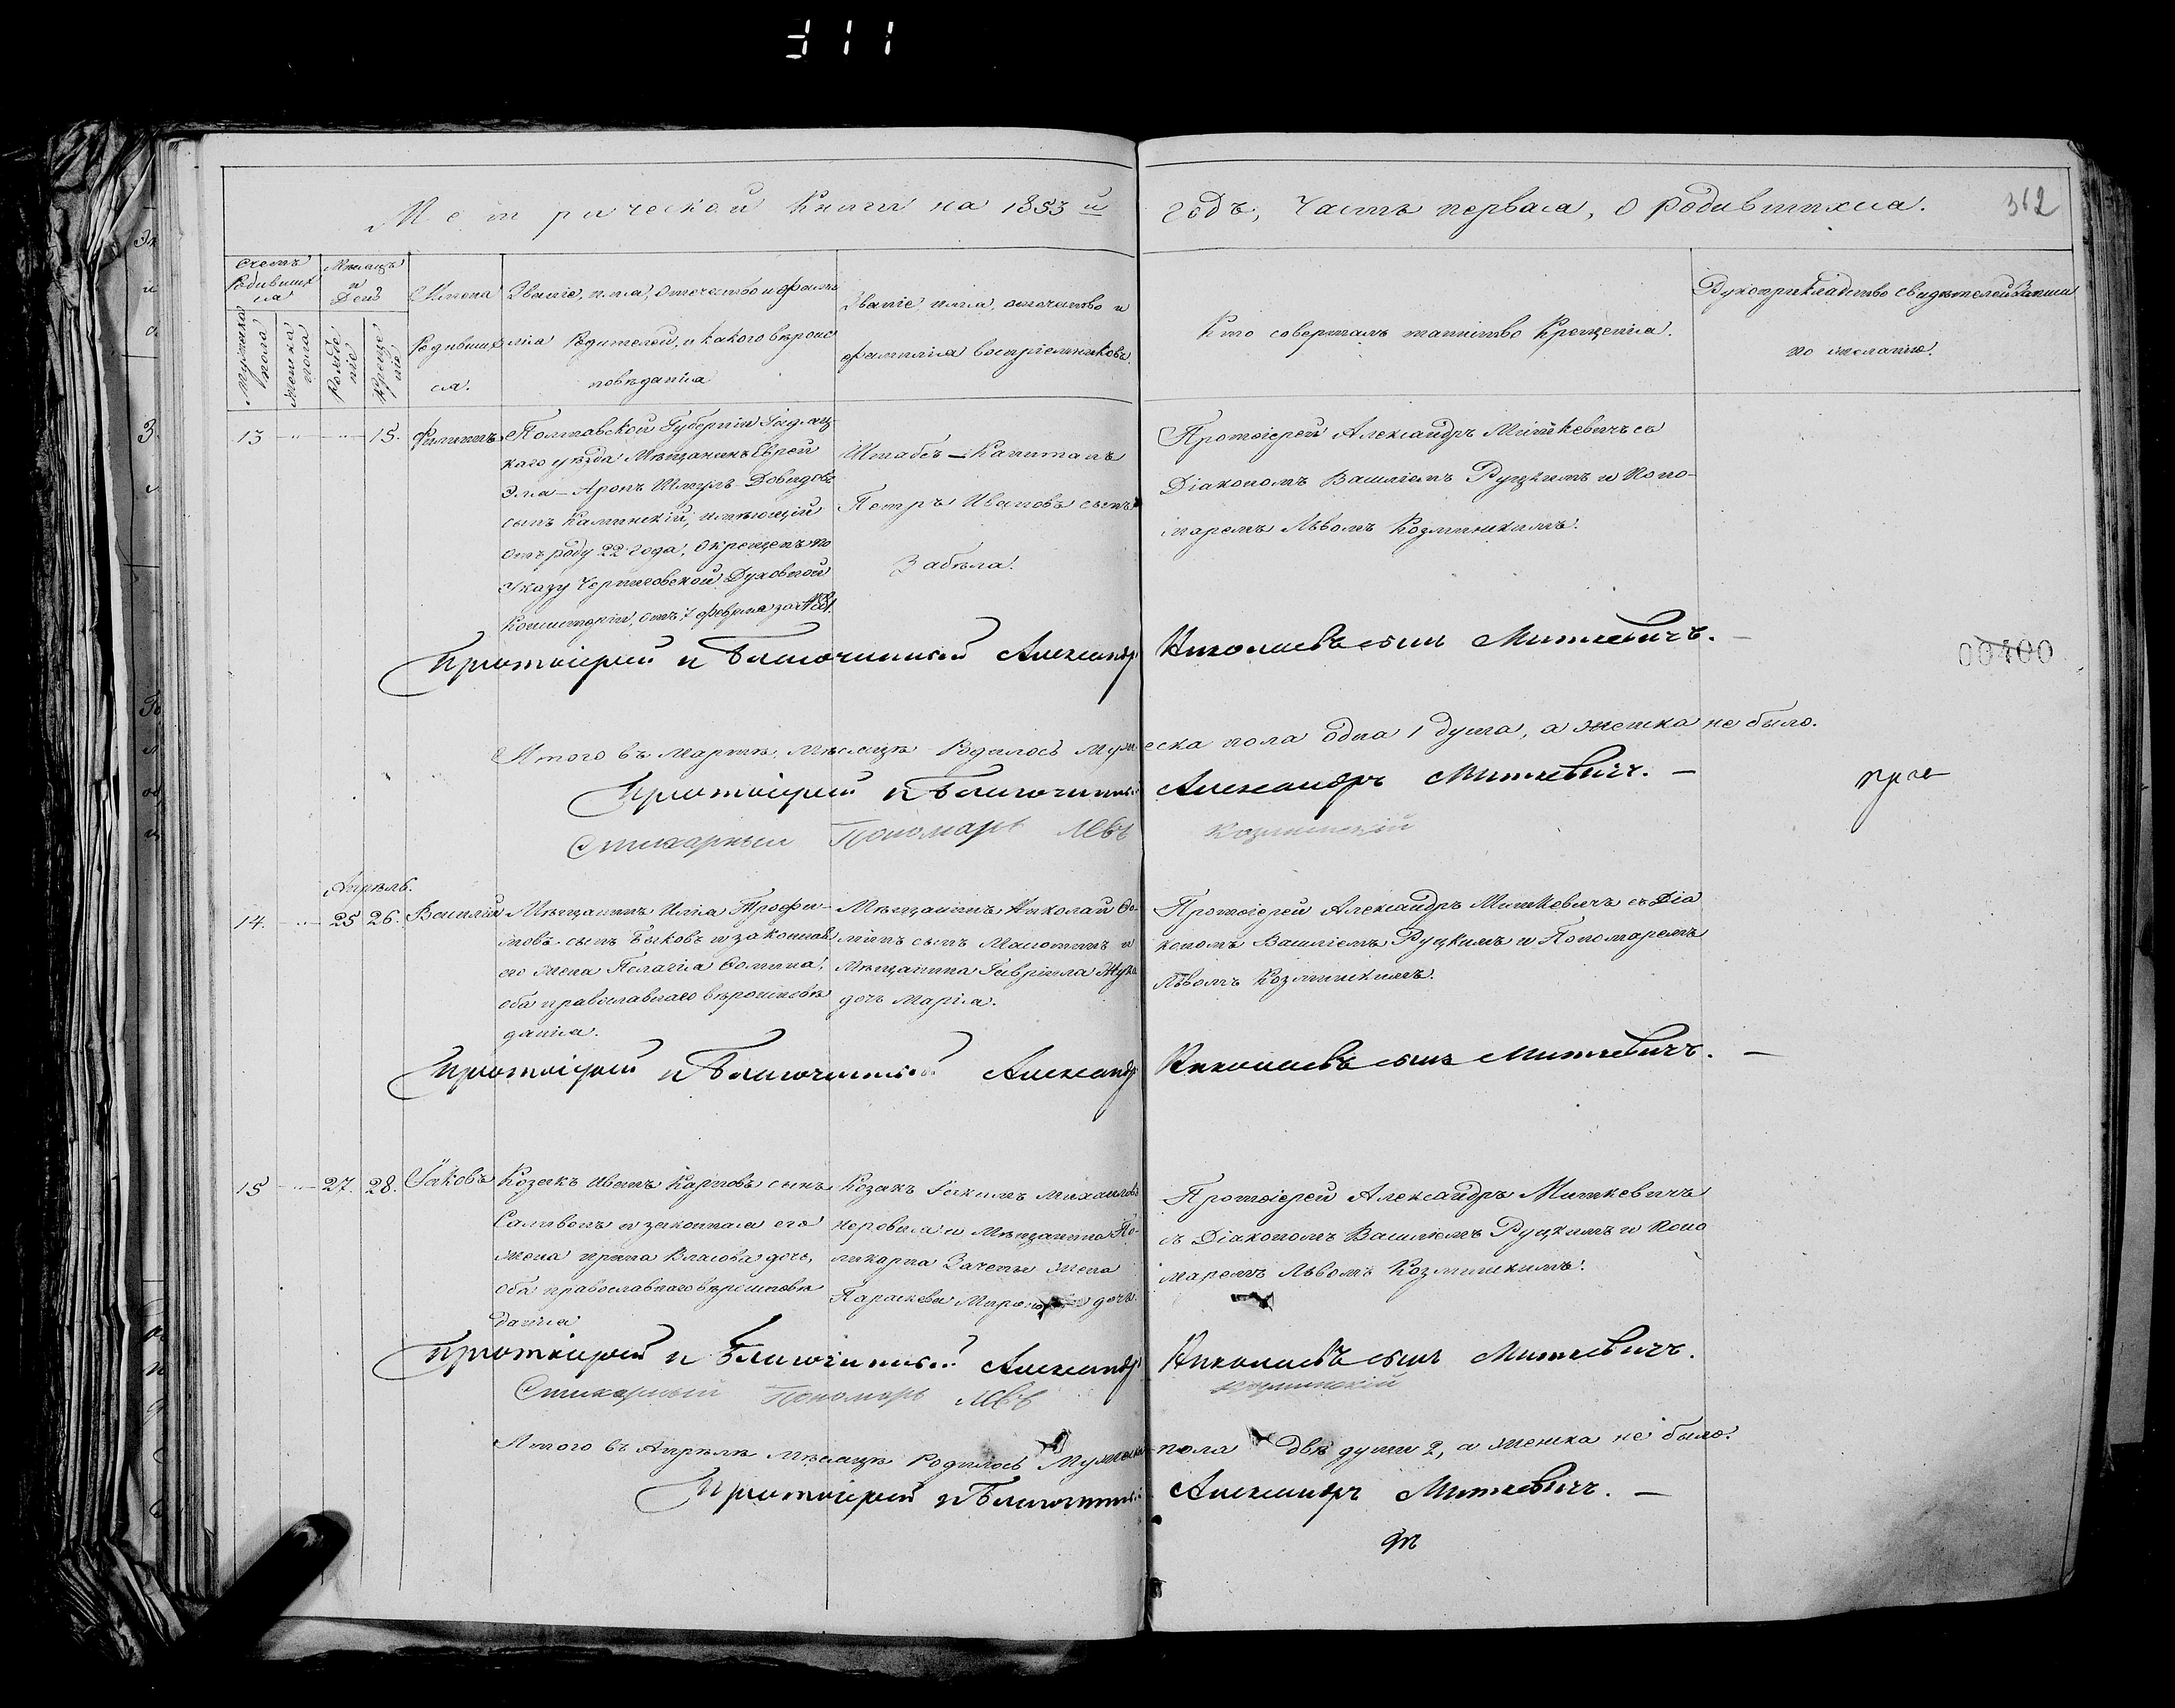 311
Метрической Книги на 1853 й годъ, Часть первая, о родившихся.
312
Счетъ Родившихся
Мужеска пола
Женска пола
Мѣсяцъ и День
Рожденіе
Крещеніе
Имена Родившихся.
Званіе, имя, отечество и фамилія Родителей, и какого вѣроисповѣданія
Званіе, имя, отечество и фамилія воспріемниковъ.
Кто совершалъ таинство Крещенія.
Рукоприкладство свидѣтелей Записи по желанію.
13 - " - - " - 15. Филиппъ
Полтавской Губерніи Гадяц
каго уѣзда Мѣщанинъ Еврей
Эля-Аронъ Шмуль-Довидовъ
сынъ Калинскій, имѣющій
отъ роду 22 года, Окрещенъ по
Указу Черниговской Духовной
Консисторіи, отъ 7 февраля за №
Штабсъ-Капитанъ
Петръ Ивановъ сынъ
Забѣла.
Протоіерей Александръ Миткевичъ съ
Діакономъ Василіемъ Руцкимъ и Поно-
маремъ Львомъ Козминскимъ.
Протоіерей и Благочинный Александръ Николаевъ сынъ Миткевичъ. -
00400
Итого въ Мартѣ Мѣсяцѣ Родилось Мужеска пола одна 1 душа, а женска не было.
Протоіерей и Благочинный Александръ Миткевичъ. -
Стихарный Пономарь Левъ Козминскій
Апрѣль.
14. - " - 25 26. Василій
Мѣщанинъ Илія Трофи-
мовъ сынъ Быковъ и законная
его жена Пелагія Ѳомина,
оба православнаго вѣроисповѣ
данія.
Мѣщанинъ Николай Ѳо-
минъ сынъ и
Мѣщанина Гавріила Жука
дочь Марія.
Протоіерей Александръ Миткевичъ съ Діа
кономъ Василіемъ Руцкимъ и Пономаремъ
Львомъ Козминскимъ.
Протоіерей и Благочинный Александръ Николаевъ сынъ Миткевичъ. -
15 - " - 27. 28. Іаковъ
Козакъ Иванъ Карповъ сынъ
и законная его
жена Ирина Власова дочь,
оба православнаго вѣроисповѣ
данія
Козакъ Іакимъ Михайловъ
и Мѣщанина По-
ликарпа жена
Параскева дочь.
Протоіерей Александръ Миткевичъ
съ Діакономъ Василіемъ Руцкимъ и Поно
маремъ Львомъ Козминскимъ.
Протоіерей и Благочинный Александръ Николаевъ сынъ Миткевичъ.
Стихарный Пономарь Левъ Козминскій
Итого въ Апрѣлѣ Мѣсяцѣ Родилось Мужеска пола двѣ души 2, а женска не было.
Протоіерей и Благочинный Александръ Миткевичъ. -